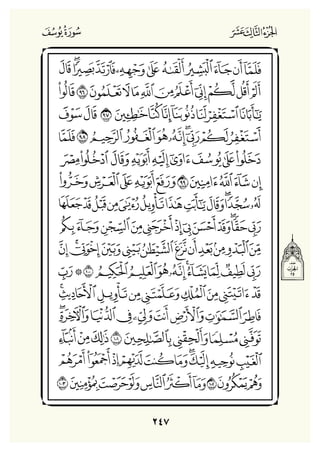 الجُزْءُ الثَّالِثَ عَشَرَ
سُورَةُ يُوسُفَ
فَلَمَّآ أَن جَآءَ ٱلْبَشِيرُ أَلْقَىٰهُ عَلَىٰ وَجْهِهِۦ فَٱرْتَدَّ بَصِيرًاۖ قَالَ
أَلَمْ أَقُل لَّكُمْ إِنِّىٓ أَعْلَمُ مِنَ ٱللَّهِ مَا لَا تَعْلَمُونَ ٩٦ قَالُوا۟
يَٰٓأَبَانَا ٱسْتَغْفِرْ لَنَا ذُنُوبَنَآ إِنَّا كُنَّا خَٰطِـِٔينَ ٩٧ قَالَ سَوْفَ
أَسْتَغْفِرُ لَكُمْ رَبِّىٓۖ إِنَّهُۥ هُوَ ٱلْغَفُورُ ٱلرَّحِيمُ ٩٨ فَلَمَّا
دَخَلُوا۟ عَلَىٰ يُوسُفَ ءَاوَىٰٓ إِلَيْهِ أَبَوَيْهِ وَقَالَ ٱدْخُلُوا۟ مِصْرَ
إِن شَآءَ ٱللَّهُ ءَامِنِينَ ٩٩ وَرَفَعَ أَبَوَيْهِ عَلَى ٱلْعَرْشِ وَخَرُّوا۟
لَهُۥ سُجَّدًاۖ وَقَالَ يَٰٓأَبَتِ هَٰذَا تَأْوِيلُ رُءْيَٰىَ مِن قَبْلُ قَدْ جَعَلَهَا
رَبِّى حَقًّاۖ وَقَدْ أَحْسَنَ بِىٓ إِذْ أَخْرَجَنِى مِنَ ٱلسِّجْنِ وَجَآءَ بِكُم
مِّنَ ٱلْبَدْوِ مِنۢ بَعْدِ أَن نَّزَغَ ٱلشَّيْطَٰنُ بَيْنِى وَبَيْنَ إِخْوَتِىٓۚ إِنَّ
رَبِّى لَطِيفٌ لِّمَا يَشَآءُۚ إِنَّهُۥ هُوَ ٱلْعَلِيمُ ٱلْحَكِيمُ ١٠٠ ۞ رَبِّ
قَدْ ءَاتَيْتَنِى مِنَ ٱلْمُلْكِ وَعَلَّمْتَنِى مِن تَأْوِيلِ ٱلْأَحَادِيثِۚ
فَاطِرَ ٱلسَّمَٰوَٰتِ وَٱلْأَرْضِ أَنتَ وَلِىِّۦ فِى ٱلدُّنْيَا وَٱلْءَاخِرَةِۖ
تَوَفَّنِى مُسْلِمًا وَأَلْحِقْنِى بِٱلصَّٰلِحِينَ ١٠١ ذَٰلِكَ مِنْ أَنۢبَآءِ
ٱلْغَيْبِ نُوحِيهِ إِلَيْكَۖ وَمَا كُنتَ لَدَيْهِمْ إِذْ أَجْمَعُوٓا۟ أَمْرَهُمْ
وَهُمْ يَمْكُرُونَ ١٠٢ وَمَآ أَكْثَرُ ٱلنَّاسِ وَلَوْ حَرَصْتَ بِمُؤْمِنِينَ ١٠٣
٢٤٧